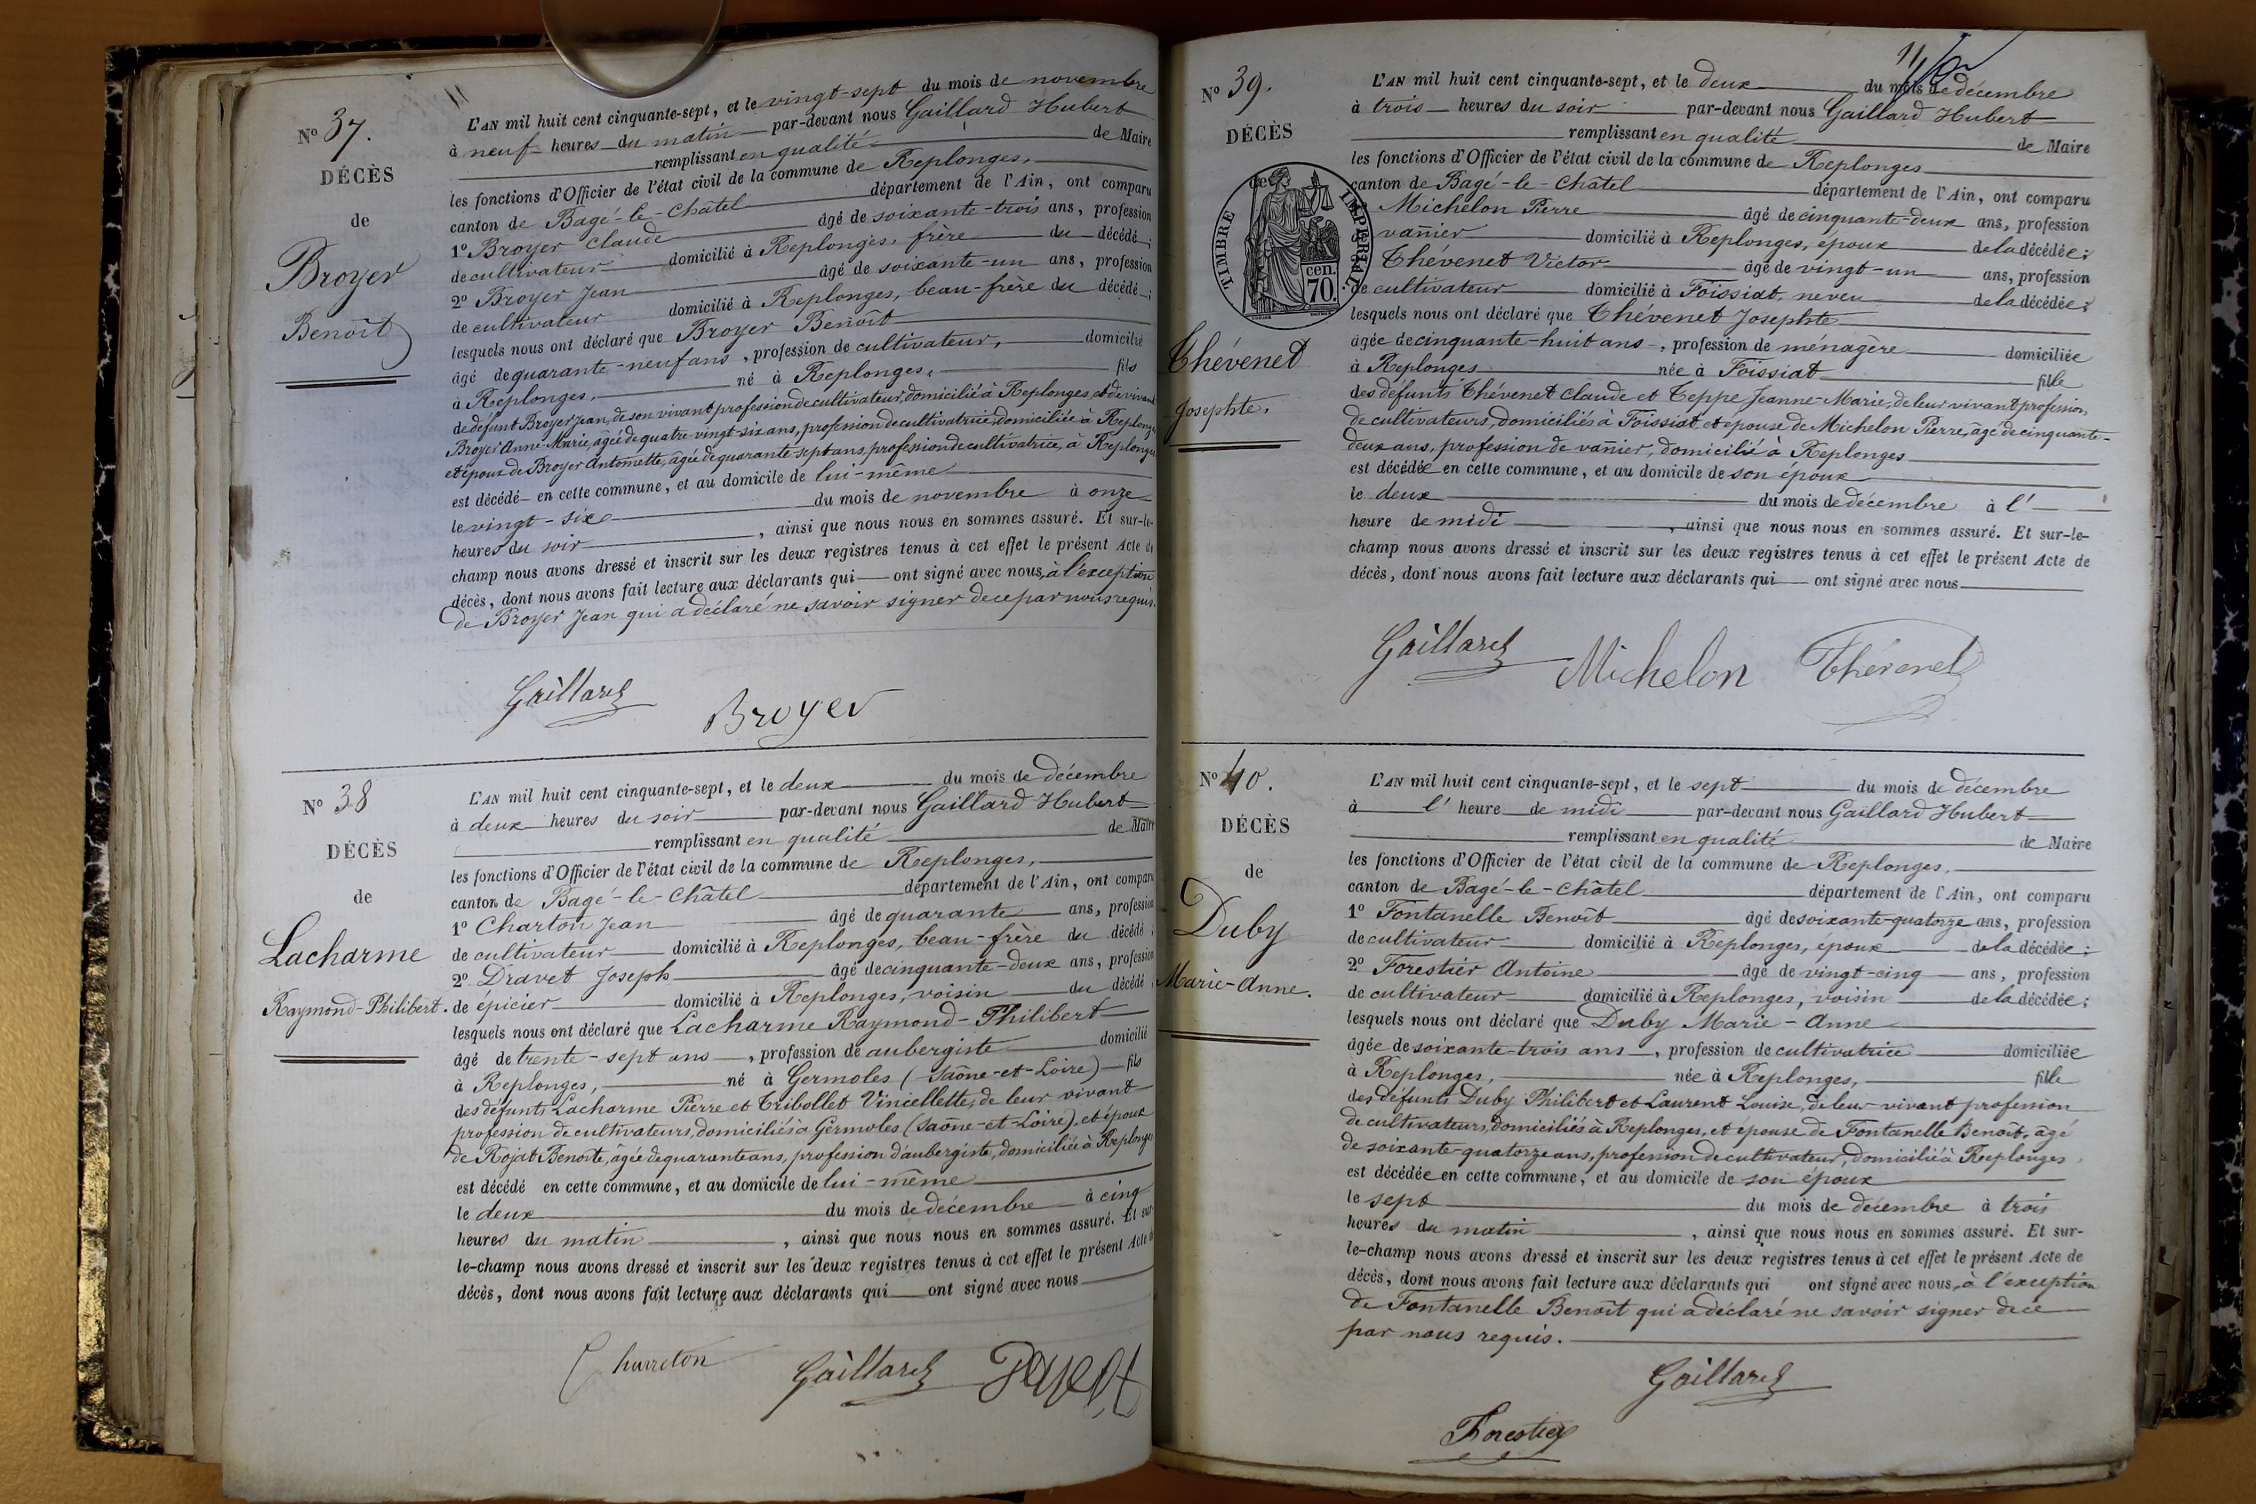 11
N° 37.
DÉCÈS
de
Broyer
Benoît
L'AN mil huit cent cinquante-sept, et le vingt-sept du mois de novembre
à neuf heures du matin par-devant nous Gaillard Hubert
remplissant en qualité de Maire
les fonctions d'Officier de l'état civil de la commune de Replonges,
canton de Bagé-le-Châtel département de l'Ain, ont comparu
1° Broyer Claude âgé de soixante-trois ans, profession
de cultivateur domicilié à Replonges, frère du décédé;
2° Broyer Jean âgé de soixante-un ans, profession
de cultivateur domicilié à Replonges, beau-frère du décédé;
lesquels nous ont déclaré que Broyer Benoît
âgé de quarante-neuf ans, profession de cultivateur, domicilié
à Replonges, né à Replonges, fils
de défunt Broyer Jean, de son vivant profession de cultivateur, domicilié à Replonges, et de vivant
Broyer Anne-Marie, âgée de quatre-vingt-six ans, profession de cultivatrice, domiciliée à Replonges
et époux de Broyer Antoinette, âgée de quarante-sept ans, profession de cultivatrice, à Replonges
est décédé en cette commune, et au domicile de lui-même
le vingt-six du mois de novembre à onze
heures du soir, ainsi que nous nous en sommes assuré. Et sur-le-
champ nous avons dressé et inscrit sur les deux registres tenus à cet effet le présent Acte de
décès, dont nous avons fait lecture aux déclarants qui ont signé avec nous, à l'exception
de Broyer Jean qui a déclaré ne savoir signer de ce par nous requis.
Gaillard
Broyer
N° 38
DÉCÈS
de
Lacharme
Raymond-Philibert.
L'AN mil huit cent cinquante-sept, et le deux du mois de décembre
à deux heures du soir par-devant nous Gaillard Hubert
remplissant en qualité de Maire
les fonctions d'Officier de l'état civil de la commune de Replonges,
canton de Bagé-le-Châtel département de l'Ain, ont comparu
1° Charton Jean âgé de quarante ans, profession
de cultivateur domicilié à Replonges, beau-frère du décédé;
2° Dravet Joseph âgé de cinquante-deux ans, profession
de épicier domicilié à Replonges, voisin du décédé;
lesquels nous ont déclaré que Lacharme Raymond-Philibert
âgé de trente-sept ans, profession de aubergiste domicilié
à Replonges, né à Germoles (Saône-et-Loire) fils
des défunts Lacharme Pierre et Tribollet Vincellette, de leur vivant
profession de cultivateurs, domiciliés à Germoles (Saône-et-Loire), et époux
de Rojat Benoîte, âgée de quarante ans, profession d'aubergiste, domiciliée à Replonges
est décédé en cette commune, et au domicile de lui-même
le deux du mois de décembre à cinq
heures du matin, ainsi que nous nous en sommes assuré. Et sur-
le-champ nous avons dressé et inscrit sur les deux registres tenus à cet effet le présent Acte de
décès, dont nous avons fait lecture aux déclarants qui ont signé avec nous
Gaillard
11
N° 39.
DÉCÈS
de
TIMBRE IMPERIAL
cen.
70.
Thévenet
Josephte.
L'AN mil huit cent cinquante-sept, et le deux du mois de décembre
à trois heures du soir par-devant nous Gaillard Hubert
remplissant en qualité de Maire
les fonctions d'Officier de l'état civil de la commune de Replonges
canton de Bagé-le-Châtel département de l'Ain, ont comparu
Michelon Pierre âgé de cinquante-deux ans, profession
vanier domicilié à Replonges, époux de la décédée;
Thévenet Victor âgé de vingt-un ans, profession
de cultivateur domicilié à Foissiat, neveu de la décédée;
lesquels nous ont déclaré que Thévenet Josephte
âgée de cinquante-huit ans, profession de ménagère domiciliée
à Replonges née à Foissiat fille
des défunts Thévenet Claude et Teppe Jeanne-Marie, de leur vivant profession
de cultivateurs, domiciliés à Foissiat, et épouse de Michelon Pierre, âgé de cinquante-
deux ans, profession de vanier, domicilié à Replonges
est décédée en cette commune, et au domicile de son époux
le deux du mois de décembre à l'
heure de midi, ainsi que nous nous en sommes assuré. Et sur-le-
champ nous avons dressé et inscrit sur les deux registres tenus à cet effet le présent Acte de
décès, dont nous avons fait lecture aux déclarants qui ont signé avec nous
Gaillard Michelon Thévenet
N° 40.
DÉCÈS
de
Duby
Marie-Anne.
L'AN mil huit cent cinquante-sept, et le sept du mois de décembre
à l'heure de midi par-devant nous Gaillard Hubert
remplissant en qualité de Maire
les fonctions d'Officier de l'état civil de la commune de Replonges,
canton de Bagé-le-Châtel département de l'Ain, ont comparu
1° Fontanelle Benoît âgé de soixante-quatorze ans, profession
de cultivateur domicilié à Replonges, époux de la décédée;
2° Forestier Antoine âgé de vingt-cinq ans, profession
de cultivateur domicilié à Replonges, voisin de la décédée;
lesquels nous ont déclaré que Duby Marie-Anne
âgée de soixante-trois ans, profession de cultivatrice domiciliée
à Replonges, née à Replonges, fille
des défunts Duby Philibert et Laurent Louise, de leur vivant profession
de cultivateurs, domiciliés à Replonges, et épouse de Fontanelle Benoît, âgé
de soixante-quatorze ans, profession de cultivateur, domicilié à Replonges
est décédée en cette commune, et au domicile de son époux
le sept du mois de décembre à trois
heures du matin, ainsi que nous nous en sommes assuré. Et sur-
le-champ nous avons dressé et inscrit sur les deux registres tenus à cet effet le présent Acte de
décès, dont nous avons fait lecture aux déclarants qui ont signé avec nous, à l'exception
de Fontanelle Benoît qui a déclaré ne savoir signer de ce
par nous requis.
Gaillard
Forestier